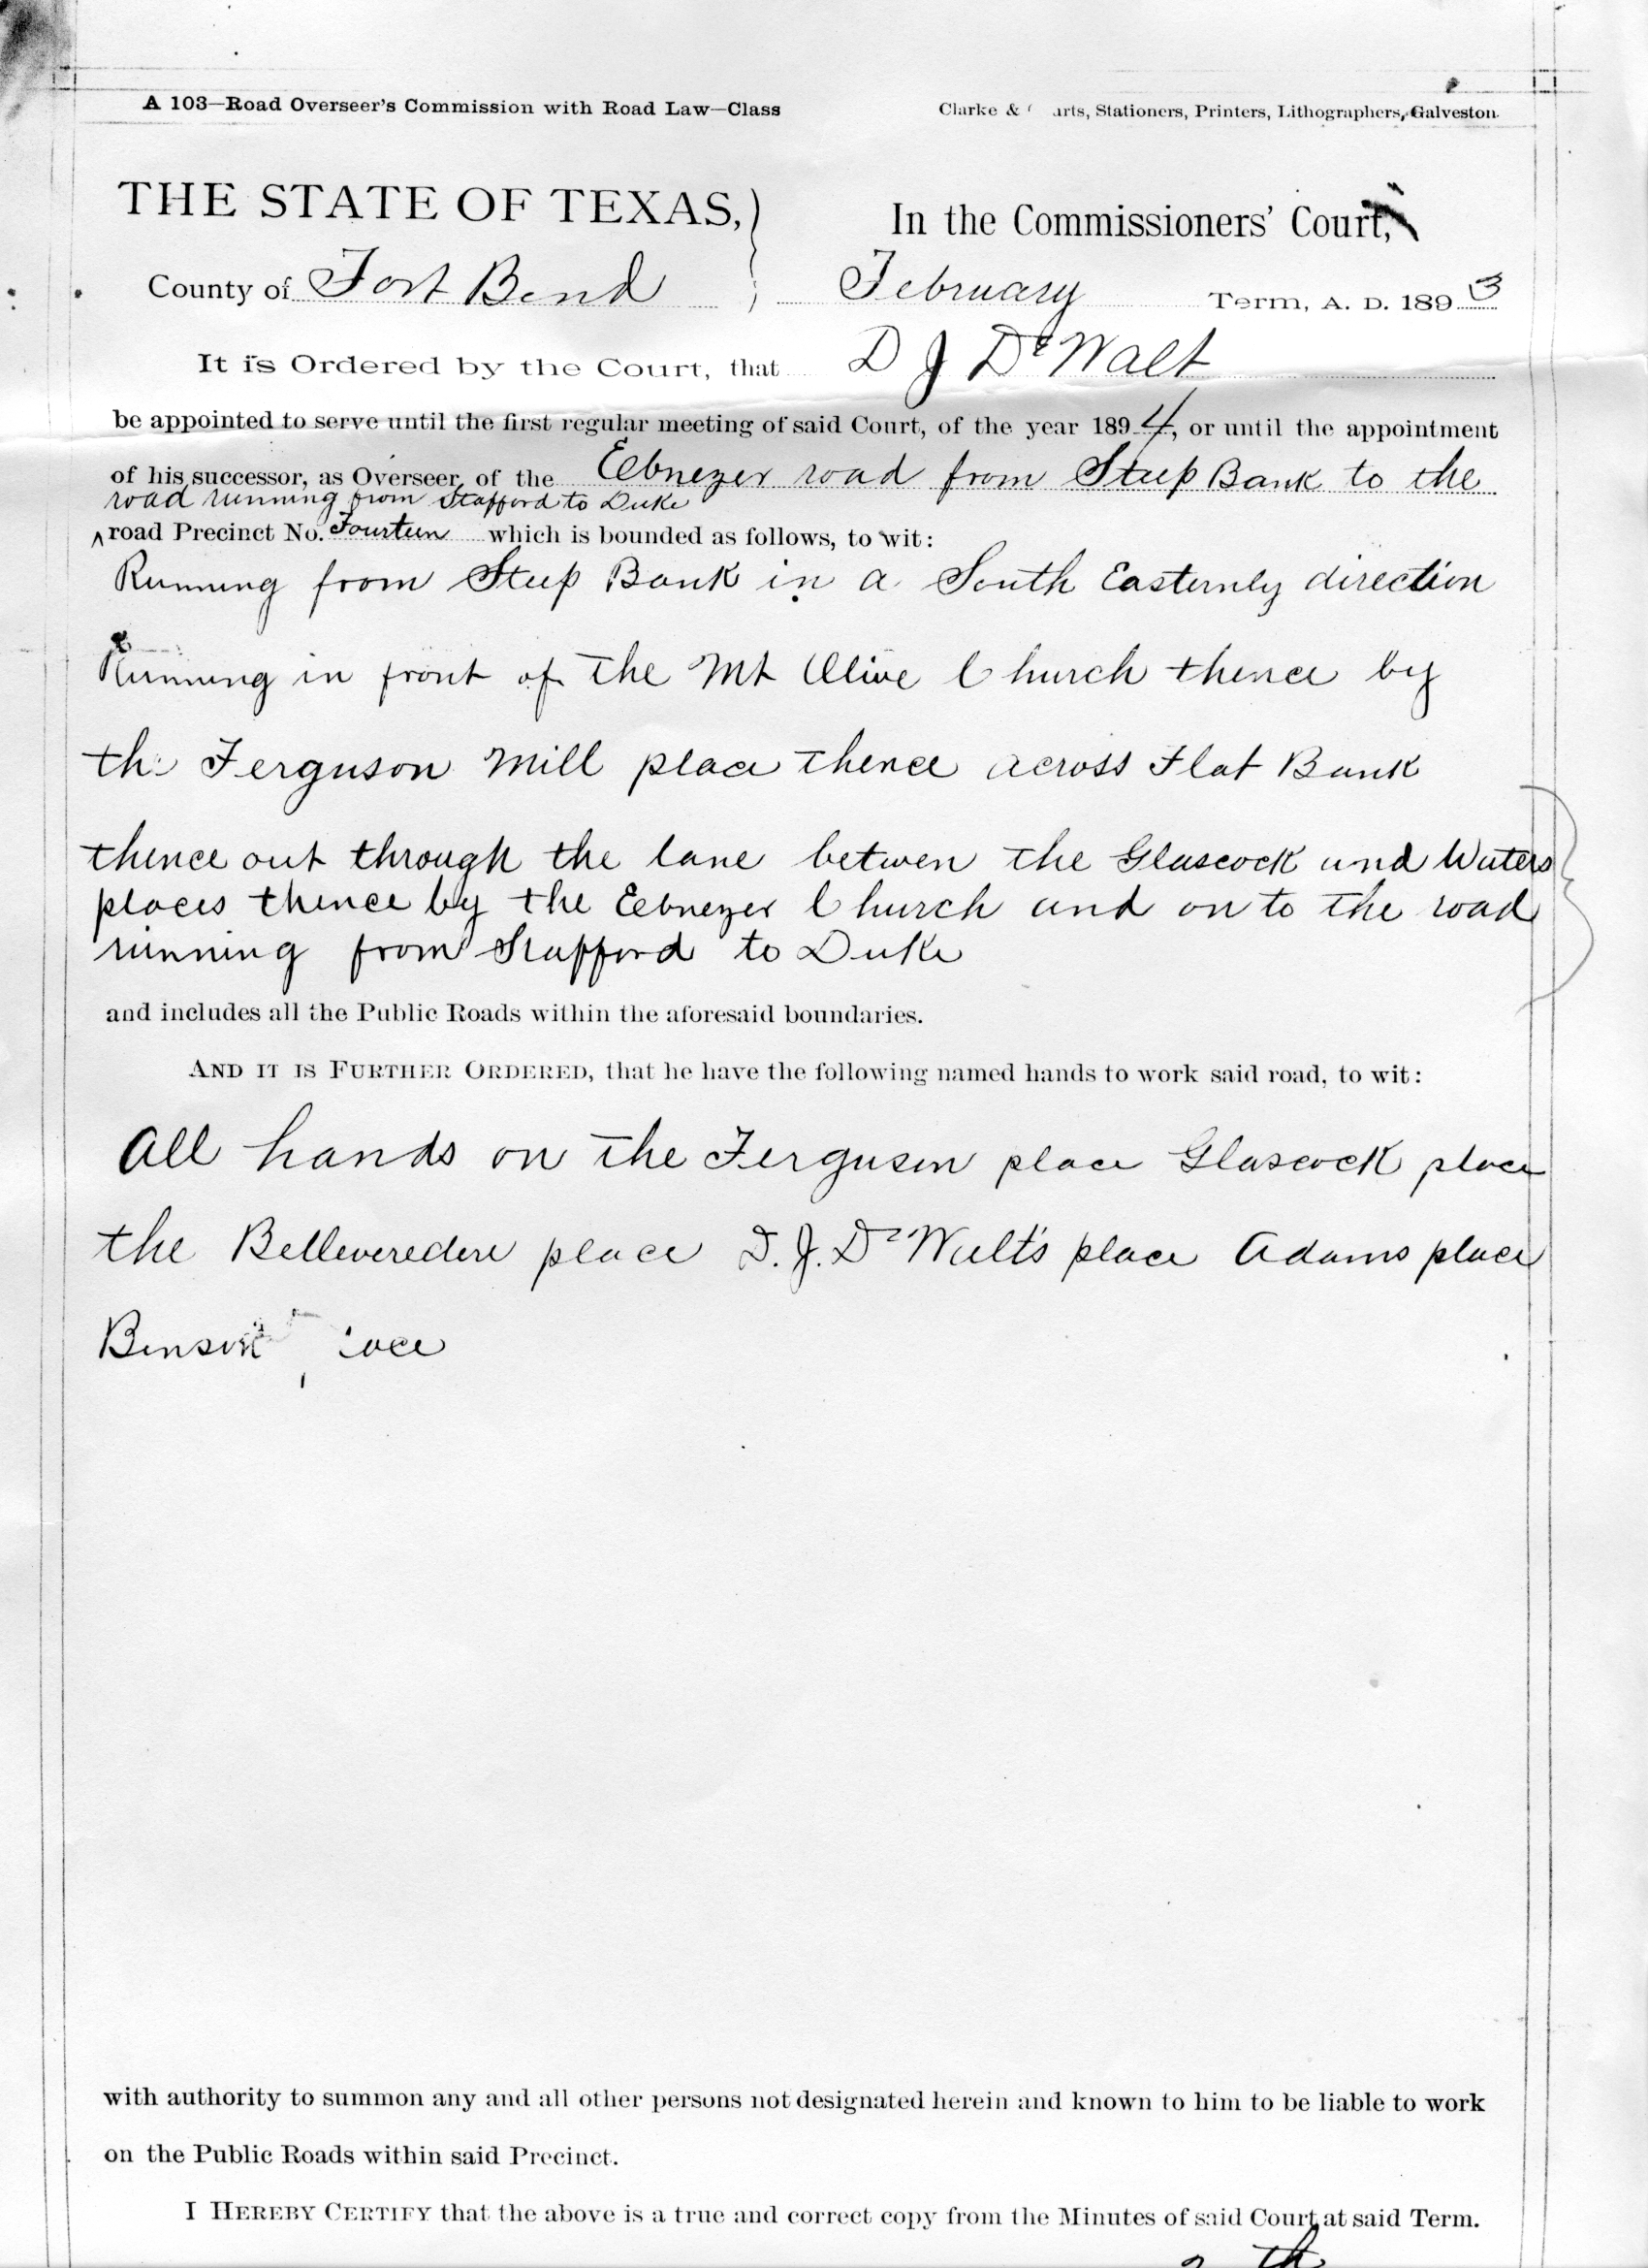 A 103—Road Overseer's Commission with Road Law—Class
Clarke & arts, Stationers, Printers, Lithographers, Galveston.
THE STATE OF TEXAS,
County of Fort Bend
In the Commissioners' Court,
February Term, A. D. 1893
It is Ordered by the Court, that D J De Walt
be appointed to serve until the first regular meeting of said Court, of the year 1894, or until the appointment
of his successor, as Overseer of the Ebnezer road from Steep Bank to the
road running from Stafford to Duke
road Precinct No. Fourteen which is bounded as follows, to wit:
Running from Steep Bank in a South Easternly direction
Running in front of the Mt Olive Church thence by
the Ferguson Mill place thence across Flat Bank
thence out through the lane betwen the Glascock and Waters
places thence by the Ebnezer Church and on to the road
running from Stafford to Duke
and includes all the Public Roads within the aforesaid boundaries.
AND IT IS FURTHER ORDERED, that he have the following named hands to work said road, to wit:
All hands on the Ferguson place Glascock place
the Belleveredere place D. J. De Walt's place Adams place
with authority to summon any and all other persons not designated herein and known to him to be liable to work
on the Public Roads within said Precinct.
I HEREBY CERTIFY that the above is a true and correct copy from the Minutes of said Court at said Term.